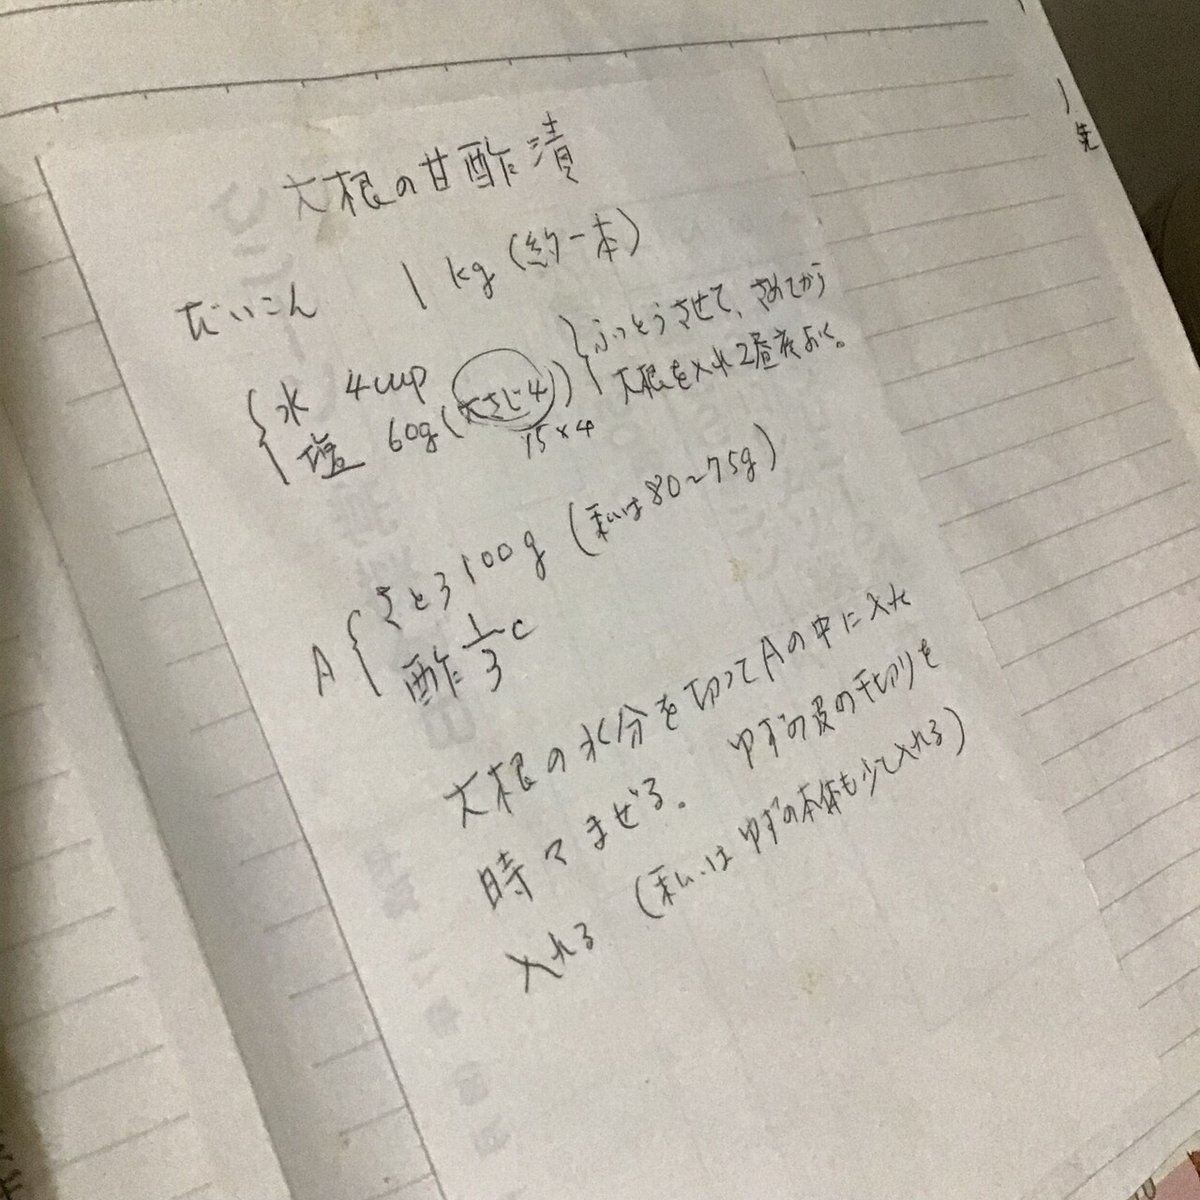 大根の甘酢漬
だいこん 1kg (約一本)
水 4cup
塩 60g (大さじ4)
15×4
ふっとうさせて、さめてから
大根を入れ2昼夜おく。
A
さとう 100g (私は80~75g)
酢 1/3 c
大根の水分を切ってAの中に入れ
時々まぜる。 ゆずの皮の千切りを
入れる (私はゆずの本体も少し入れる)
先